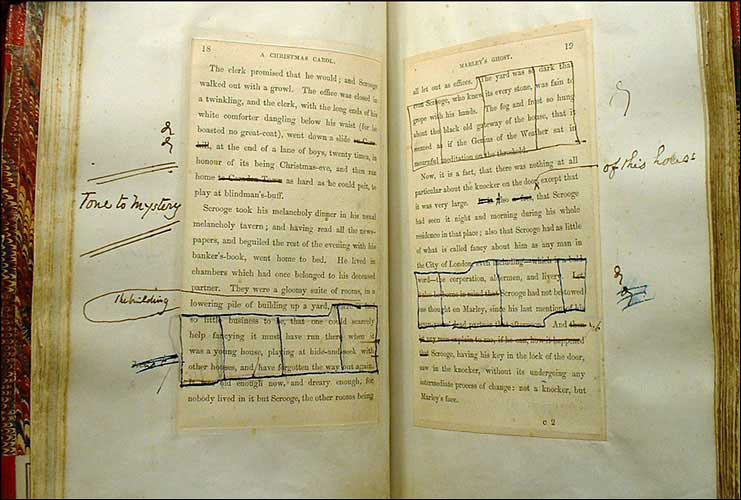 18
A CHRISTMAS CAROL.
The clerk promised that he would; and Scrooge
walked out with a growl. The office was closed in
a twinkling, and the clerk, with the long ends of his
white comforter dangling below his waist (for he
boasted no great-coat), went down a slide on Corn-
hill, at the end of a lane of boys, twenty times, in
honour of its being Christmas-eve, and then ran
home to Camden Town as hard as he could pelt, to
play at blindman's-buff.
Tone to mystery
Scrooge took his melancholy dinner in his usual
melancholy tavern; and having read all the news-
papers, and beguiled the rest of the evening with his
banker's-book, went home to bed. He lived in
chambers which had once belonged to his deceased
partner. They were a gloomy suite of rooms, in a
The building
lowering pile of building up a yard, where it had
so little business to be, that one could scarcely
help fancying it must have run there when it
was a young house, playing at hide-and-seek with
other houses, and have forgotten the way out again.
old enough now, and dreary enough, for
nobody lived in it but Scrooge, the other rooms being
MARLEY'S GHOST.
19
all let out as offices. The yard was so dark that
even Scrooge, who knew its every stone, was fain to
grope with his hands. The fog and frost so hung
about the black old gateway of the house, that it
seemed as if the Genius of the Weather sat in
mournful meditation on the threshold.
Now, it is a fact, that there was nothing at all
of this house
particular about the knocker on the door, except that
it was very large. also that Scrooge
had seen it night and morning during his whole
residence in that place; also that Scrooge had as little
of what is called fancy about him as any man in
the City of London, even including—which is a bold
word—the corporation, aldermen, and livery. Let
it also be borne in mind that Scrooge had not bestowed
one thought on Marley, since his last mention of his
dead partner that afternoon. And then let
any man explain to me, if he can, how it happened
that Scrooge, having his key in the lock of the door,
saw in the knocker, without its undergoing any
intermediate process of change: not a knocker, but
Marley's face.
C 2